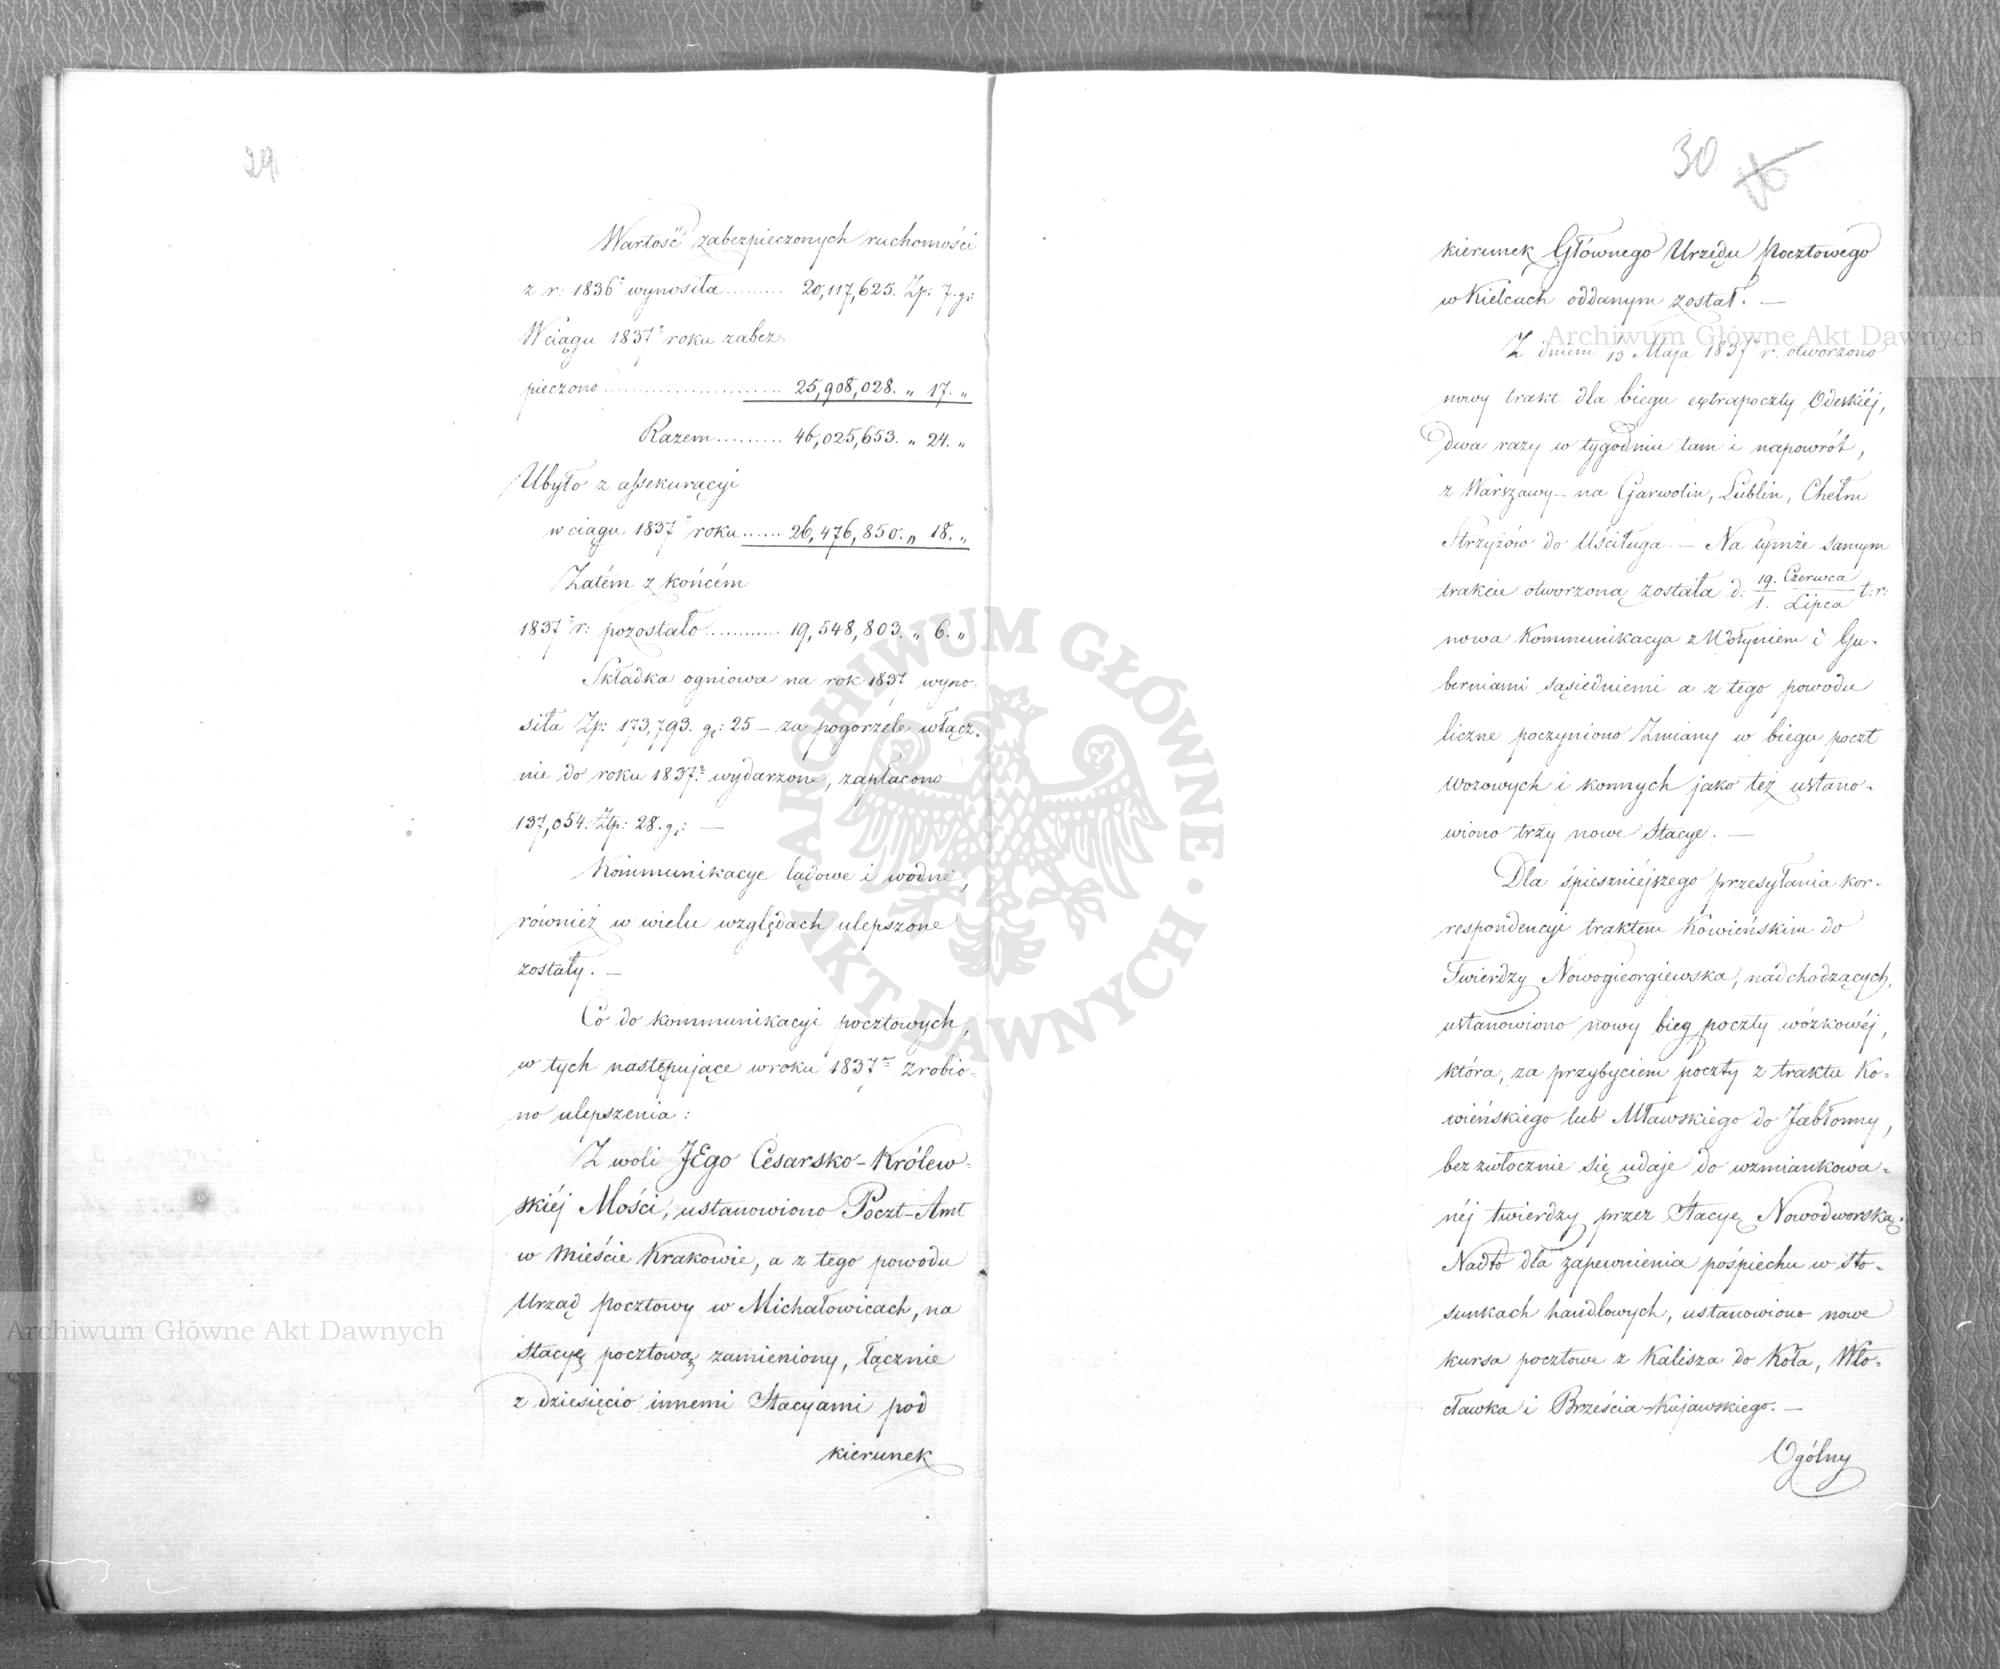 29.
Wartość zabezpieczonych ruchomości
z r: 1836º wynosiła ......... 20,117,625. Zp: 7. gr:
W ciągu 1837º roku zabez=
pieczono ........................ 25,908,028. „ 17. „
Razem ......... 46,025,653. „ 24. „
Ubyło z assekuracyi
w ciągu 1837º roku ...... 26,476,850. „ 18. „
Zatém z końcém
1837º r: pozostało ........... 19,548,803. „ 6. „
Składka ogniowa na rok 1837 wyno=
siła Zp: 173,793. gr: 25 – za pogorzele włącz=
nie do roku 1837º wydarzone, zapłacono
137,054. Złp: 28. gr: —
Kommunikacye lądowe i wodne,
również w wielu względach ulepszone
zostały. —
Co do kommunikacyi pocztowych,
w tych następujące w roku 1837m zrobio=
no ulepszenia:
Z woli JEgo Cesarsko-Królew=
skiéj Mości, ustanowiono Poczt-Amt
w Mieście Krakowie, a z tego powodu
Urząd pocztowy w Michałowicach, na
Stacyę pocztową zamieniony, łącznie
z dziesięcio innemi Stacyami pod
kierunek
30
kierunek Głównego Urzędu Pocztowego
w Kielcach oddanym został. —
Z dniem 13 Maja 1837 r. otworzono
nowy trakt dla biegu extrapoczty Odeskiéj,
dwa razy w tygodniu tam i napowrót,
z Warszawy – na Garwolin, Lublin, Chełm
Strzyżów do Uściługa. – Na tymże samym
trakcie otworzoną została d: 19. Czerwca / 1. Lipca t: r:
nowa Kommunikacya z Wołyniem i Gu=
berniami sąsiedniemi a z tego powodu
liczne poczyniono Zmiany w biegu poczt
wozowych i konnych jako też ustano=
wiono trzy nowe Stacye. —
Dla śpieszniejszego przesyłania kor=
respondencyi traktem Kowieńskim do
Twierdzy Nowogieorgiewska, nadchodzących,
ustanowiono nowy bieg poczty wózkowéj,
która, za przybyciem poczty z traktu Ko=
wieńskiego lub Mławskiego do Jabłonny,
bezzwłocznie się udaje do wzmiankowa=
néj twierdzy przez Stacyę Nowodworską.
Nadto dla zapewnienia pośpiechu w sto=
sunkach handlowych, ustanowiono nowe
kursa pocztowe z Kalisza do Koła, Wło=
cławka i Brześcia-Kujawskiego. —
Ogólny
Archiwum Główne Akt Dawnych
Archiwum Główne Akt Dawnych
ARCHIWUM GŁÓWNE AKT DAWNYCH